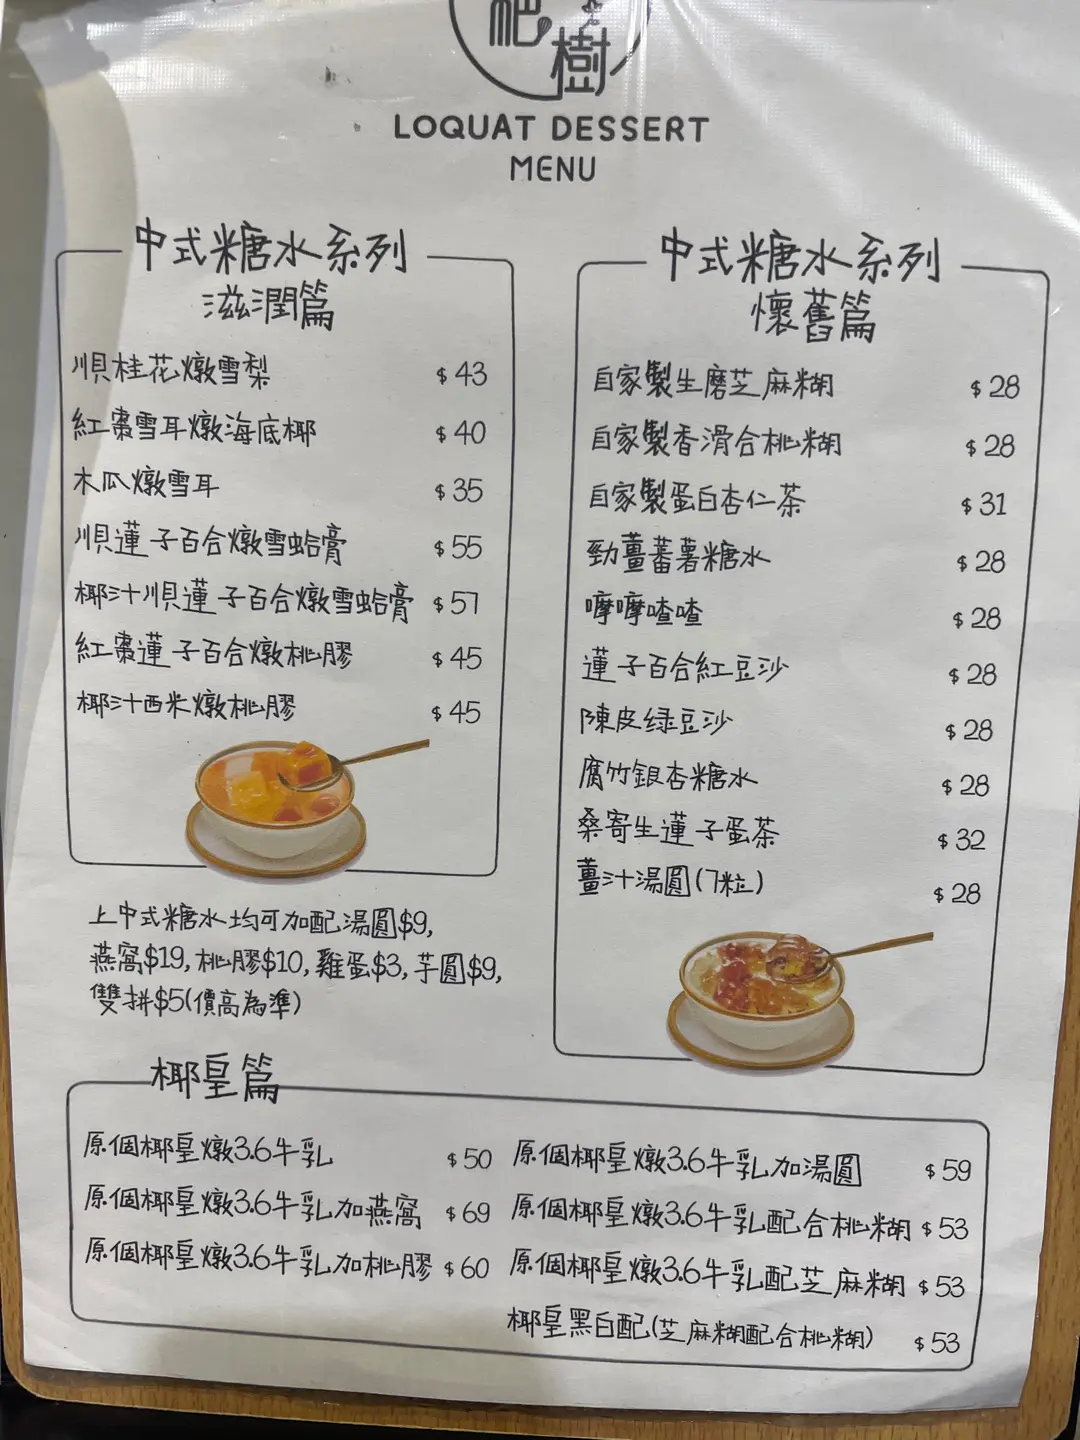 樹
LOQUAT DESSERT
MENU
中式糖水系列
滋潤篇
川貝桂花燉雪梨 $43
紅棗雪耳燉海底椰 $40
木瓜燉雪耳 $35
川貝蓮子百合燉雪蛤膏 $55
椰汁川貝蓮子百合燉雪蛤膏 $57
紅棗蓮子百合燉桃膠 $45
椰汁西米燉桃膠 $45
上中式糖水均可加配湯圓$9,
燕窩$19, 桃膠$10, 雞蛋$3, 芋圓$9,
雙拼$5(價高為準)
中式糖水系列
懷舊篇
自家製生磨芝麻糊 $28
自家製香滑合桃糊 $28
自家製蛋白杏仁茶 $31
勁薑蕃薯糖水 $28
嚤嚤喳喳 $28
蓮子百合紅豆沙 $28
陳皮绿豆沙 $28
腐竹銀杏糖水 $28
桑寄生蓮子蛋茶 $32
薑汁湯圓(7粒) $28
椰皇篇
原個椰皇燉3.6牛乳 $50
原個椰皇燉3.6牛乳加燕窩 $69
原個椰皇燉3.6牛乳加桃膠 $60
原個椰皇燉3.6牛乳加湯圓 $59
原個椰皇燉3.6牛乳配合桃糊 $53
原個椰皇燉3.6牛乳配芝麻糊 $53
椰皇黑白配(芝麻糊配合桃糊) $53